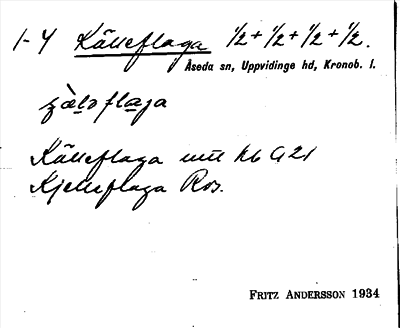 1-4 Källeflaga 1/2 + 1/2 + 1/2 + 1/2.
Åseda sn, Uppvidinge hd, Kronob. l.
Källeflaga kb G21
Kjelleflaga Ros.
FRITZ ANDERSSON 1934